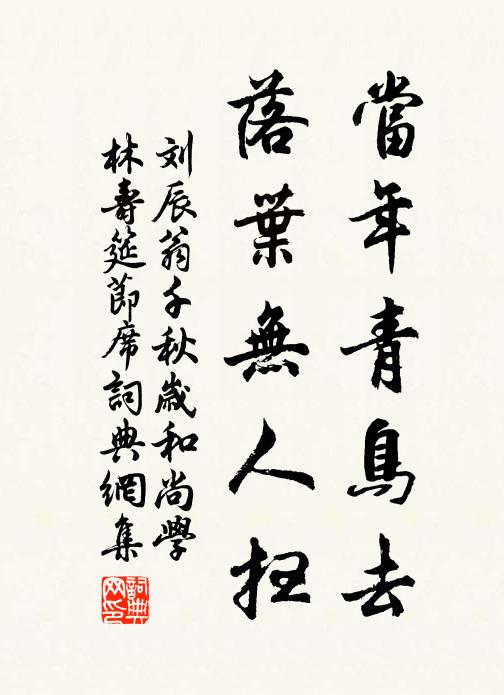 當年青鳥去
落葉無人扫
刘辰翁千秋歲和尚學
林壽筵節席詞典網集
詞典
网印